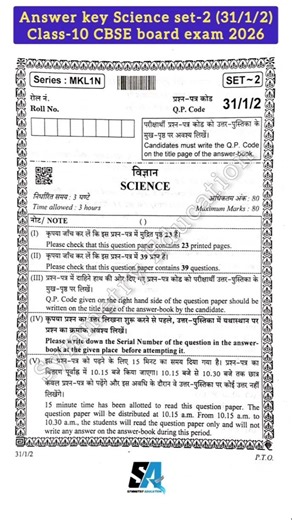 Answer key Science set-2 (31/1/2)
Class-10 CBSE board exam 2026
Series : MKL1N
SET~2
रोल नं.
Roll No.
प्रश्न-पत्र कोड
Q.P. Code
31/1/2
परीक्षार्थी प्रश्न-पत्र कोड को उत्तर-पुस्तिका के
मुख-पृष्ठ पर अवश्य लिखें।
Candidates must write the Q.P. Code
on the title page of the answer-book.
विज्ञान
SCIENCE
निर्धारित समय : 3 घण्टे
अधिकतम अंक : 80
Time allowed : 3 hours
Maximum Marks : 80
नोट / NOTE
(I) कृपया जाँच कर लें कि इस प्रश्न-पत्र में मुद्रित पृष्ठ 23 हैं।
Please check that this question paper contains 23 printed pages.
(II) कृपया जाँच कर लें कि इस प्रश्न-पत्र में 39 प्रश्न हैं।
Please check that this question paper contains 39 questions.
(III) प्रश्न-पत्र में दाहिने हाथ की ओर दिए गए प्रश्न-पत्र कोड को परीक्षार्थी उत्तर-पुस्तिका के
मुख-पृष्ठ पर लिखें।
Q.P. Code given on the right hand side of the question paper should be
written on the title page of the answer-book by the candidate.
(IV) कृपया प्रश्न का उत्तर लिखना शुरू करने से पहले, उत्तर-पुस्तिका में यथास्थान पर
प्रश्न का क्रमांक अवश्य लिखें।
Please write down the Serial Number of the question in the answer-
book at the given place before attempting it.
(V) इस प्रश्न-पत्र को पढ़ने के लिए 15 मिनट का समय दिया गया है। प्रश्न-पत्र का
वितरण पूर्वाह्न में 10.15 बजे किया जाएगा। 10.15 बजे से 10.30 बजे तक छात्र
केवल प्रश्न-पत्र को पढ़ेंगे और इस अवधि के दौरान वे उत्तर-पुस्तिका पर कोई उत्तर नहीं
लिखेंगे।
15 minute time has been allotted to read this question paper. The
question paper will be distributed at 10.15 a.m. From 10.15 a.m. to
10.30 a.m., the students will read the question paper only and will not
write any answer on the answer-book during this period.
31/1/2
P.T.O.
SA